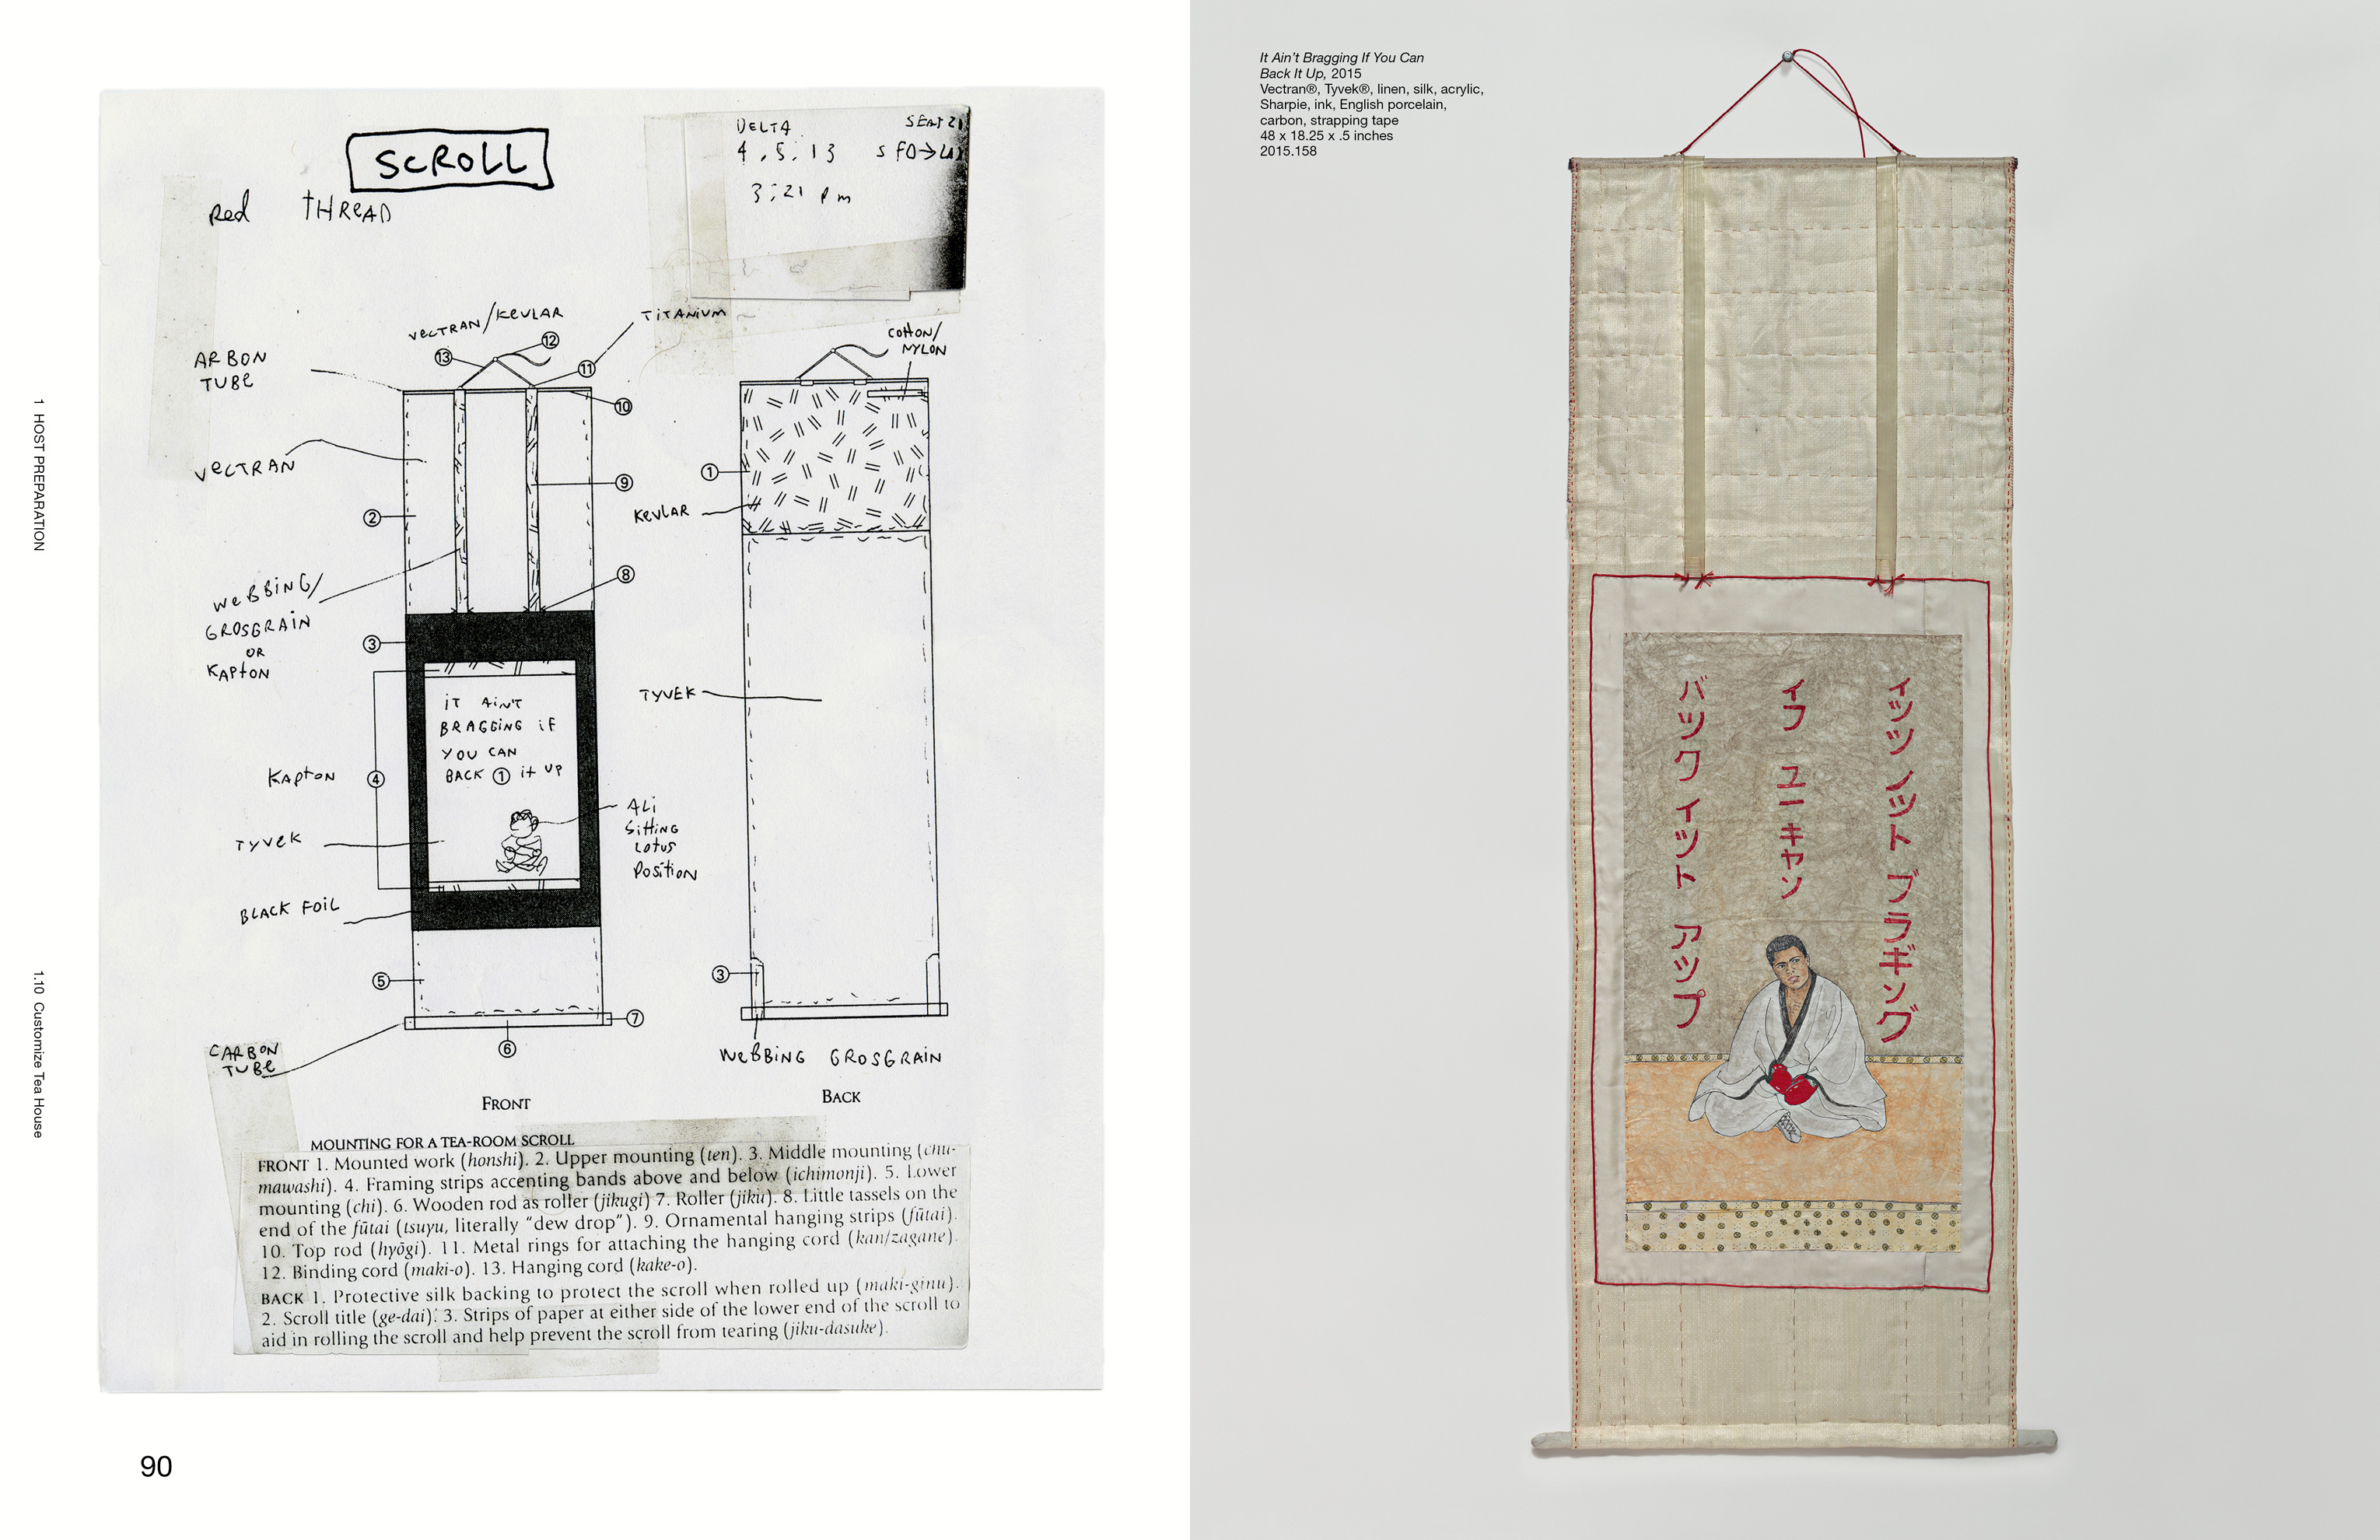 1 HOST PREPARATION
1.10 Customize Tea House
SCROLL
Red THREAD
DELTA SEAT 21
4.5.13 SFO→LAX
3:21 pm
VECTRAN/KEVLAR
TITANIUM
ARBON
TUBE
COTTON/
NYLON
13
12
11
10
VECTRAN
9
1
2
KEVLAR
8
WEBBING/
GROSGRAIN
OR
KAPTON
3
TYVEK
IT AIN'T
BRAGGING IF
YOU CAN
BACK 1 IT UP
KAPTON
4
ALI
SITTING
LOTUS
POSITION
TYVEK
BLACK FOIL
5
3
7
6
CARBON
TUBE
WEBBING GROSGRAIN
FRONT
BACK
MOUNTING FOR A TEA-ROOM SCROLL
FRONT 1. Mounted work (honshi). 2. Upper mounting (ten). 3. Middle mounting (chu-
mawashi). 4. Framing strips accenting bands above and below (ichimonji). 5. Lower
mounting (chi). 6. Wooden rod as roller (jikugi) 7. Roller (jiku). 8. Little tassels on the
end of the fūtai (tsuyu, literally “dew drop”). 9. Ornamental hanging strips (fūtai).
10. Top rod (hyōgi). 11. Metal rings for attaching the hanging cord (kan/zagane).
12. Binding cord (maki-o). 13. Hanging cord (kake-o).
BACK 1. Protective silk backing to protect the scroll when rolled up (maki-ginu).
2. Scroll title (ge-dai). 3. Strips of paper at either side of the lower end of the scroll to
aid in rolling the scroll and help prevent the scroll from tearing (jiku-dasuke).
90
It Ain’t Bragging If You Can
Back It Up, 2015
Vectran®, Tyvek®, linen, silk, acrylic,
Sharpie, ink, English porcelain,
carbon, strapping tape
48 x 18.25 x .5 inches
2015.158
イッツ ノット ブラギング
イフ ユー キャン
バック イット アップ